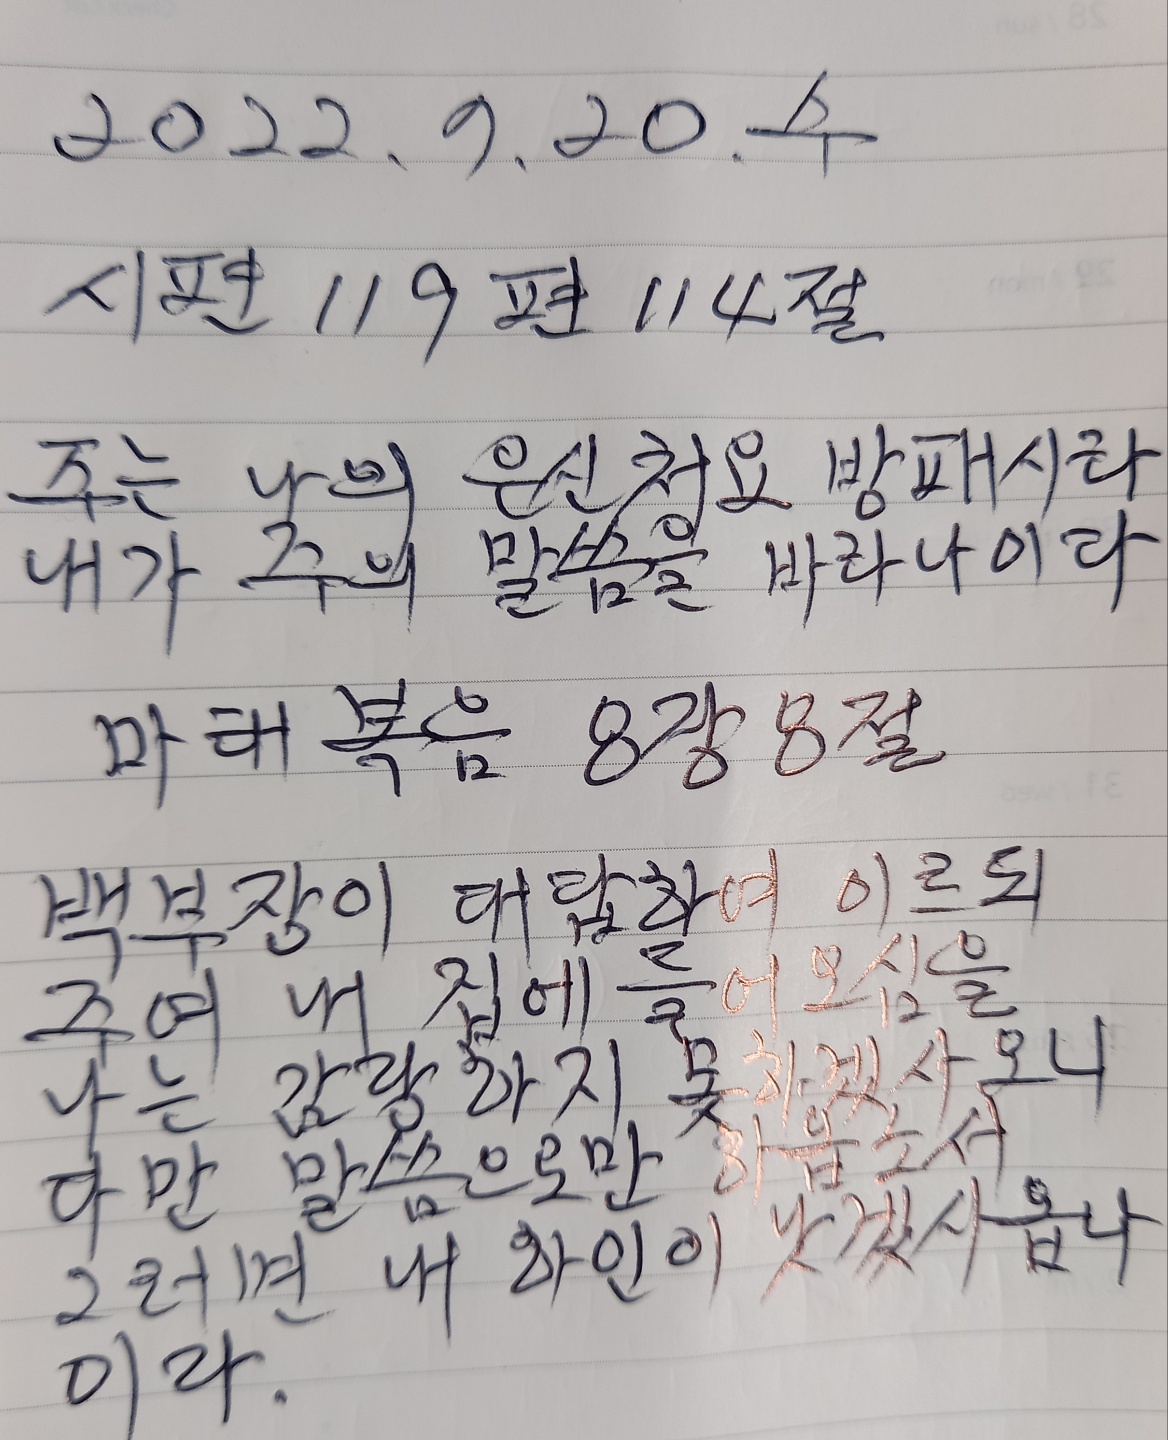 2022. 9. 20. 수
시편 119편 114절
주는 나의 은신처요 방패시라
내가 주의 말씀을 바라나이다
마태복음 8장 8절
백부장이 대답하여 이르되
주여 내 집에 들어오심을
나는 감당하지 못하겠사오니
다만 말씀으로만 하옵소서
그러면 내 하인이 낫겠사옵나
이다.